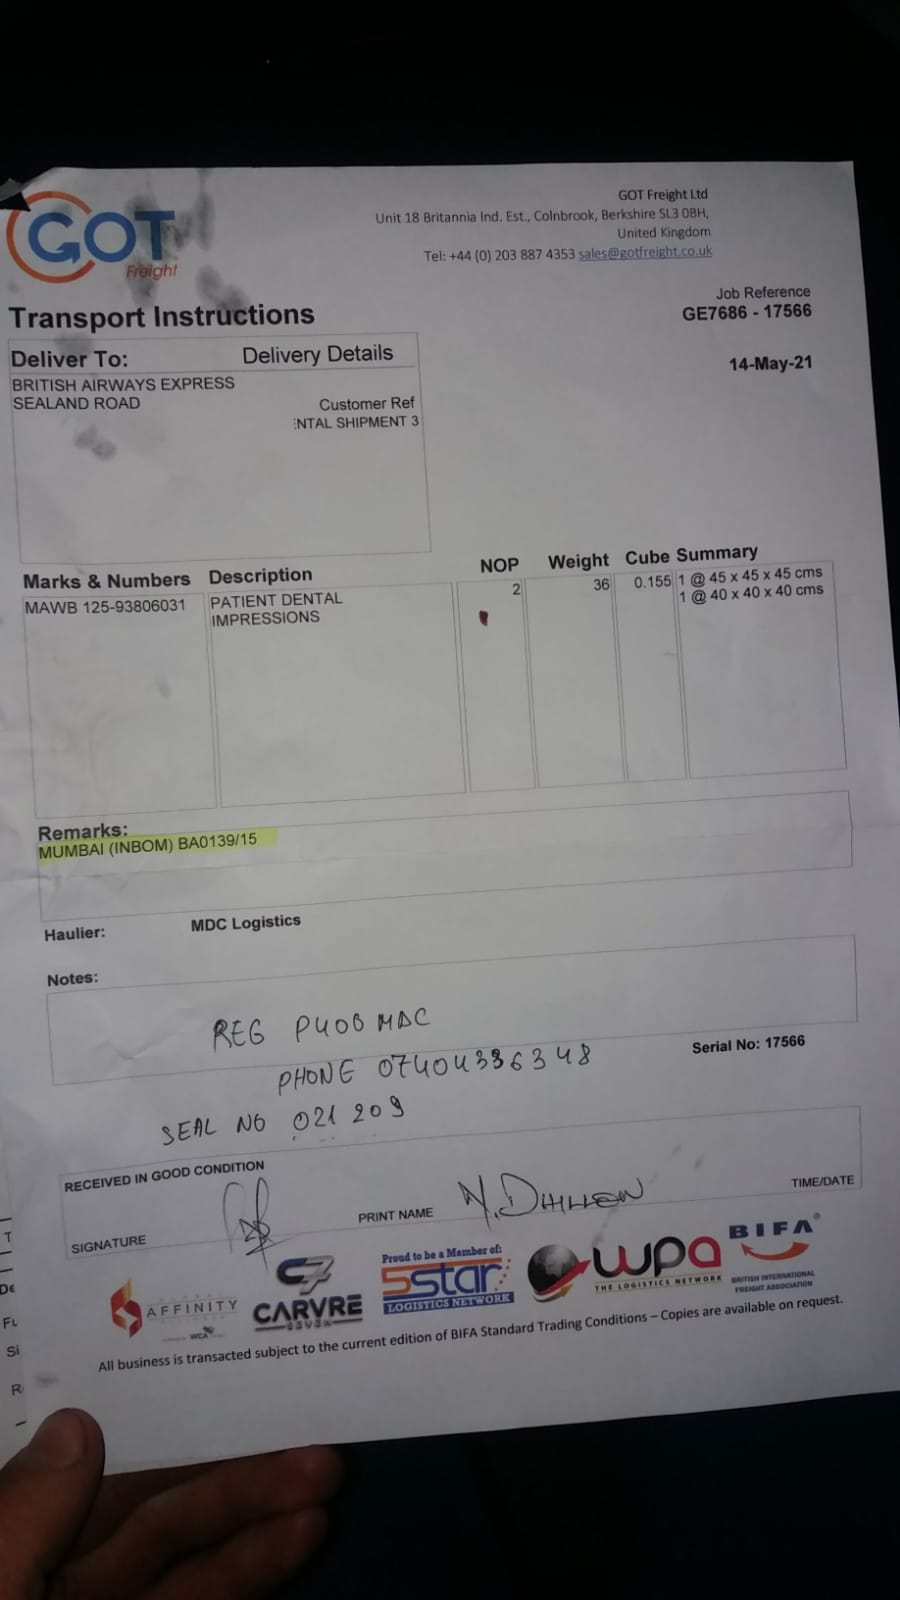 GOT
Freight
GOT Freight Ltd
Unit 18 Britannia Ind. Est., Colnbrook, Berkshire SL3 0BH,
United Kingdom
Tel: +44 (0) 203 887 4353 sales@gotfreight.co.uk
Job Reference
GE7686 - 17566
14-May-21
Transport Instructions
Deliver To: Delivery Details
BRITISH AIRWAYS EXPRESS
SEALAND ROAD
Customer Ref
NTAL SHIPMENT 3
Marks & Numbers Description NOP Weight Cube Summary
MAWB 125-93806031 PATIENT DENTAL 2 36 0.155 1 @ 45 x 45 x 45 cms
IMPRESSIONS 1 @ 40 x 40 x 40 cms
Remarks:
MUMBAI (INBOM) BA0139/15
Haulier: MDC Logistics
Notes:
REG P400 MDC
PHONE 07404336348
Serial No: 17566
SEAL NO 021 209
RECEIVED IN GOOD CONDITION
SIGNATURE
PRINT NAME N. DHILLON
TIME/DATE
AFFINITY
WCA
C7
CARVRE
SEVEN
Proud to be a Member of:
5star
LOGISTICS NETWORK
wpa
THE LOGISTICS NETWORK
BIFA
BRITISH INTERNATIONAL
FREIGHT ASSOCIATION
All business is transacted subject to the current edition of BIFA Standard Trading Conditions – Copies are available on request.
T
De
Fu
Si
R